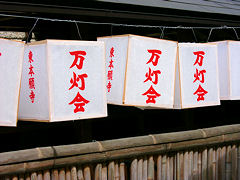 東本願寺
万灯会
東本願寺
万灯会
万灯会